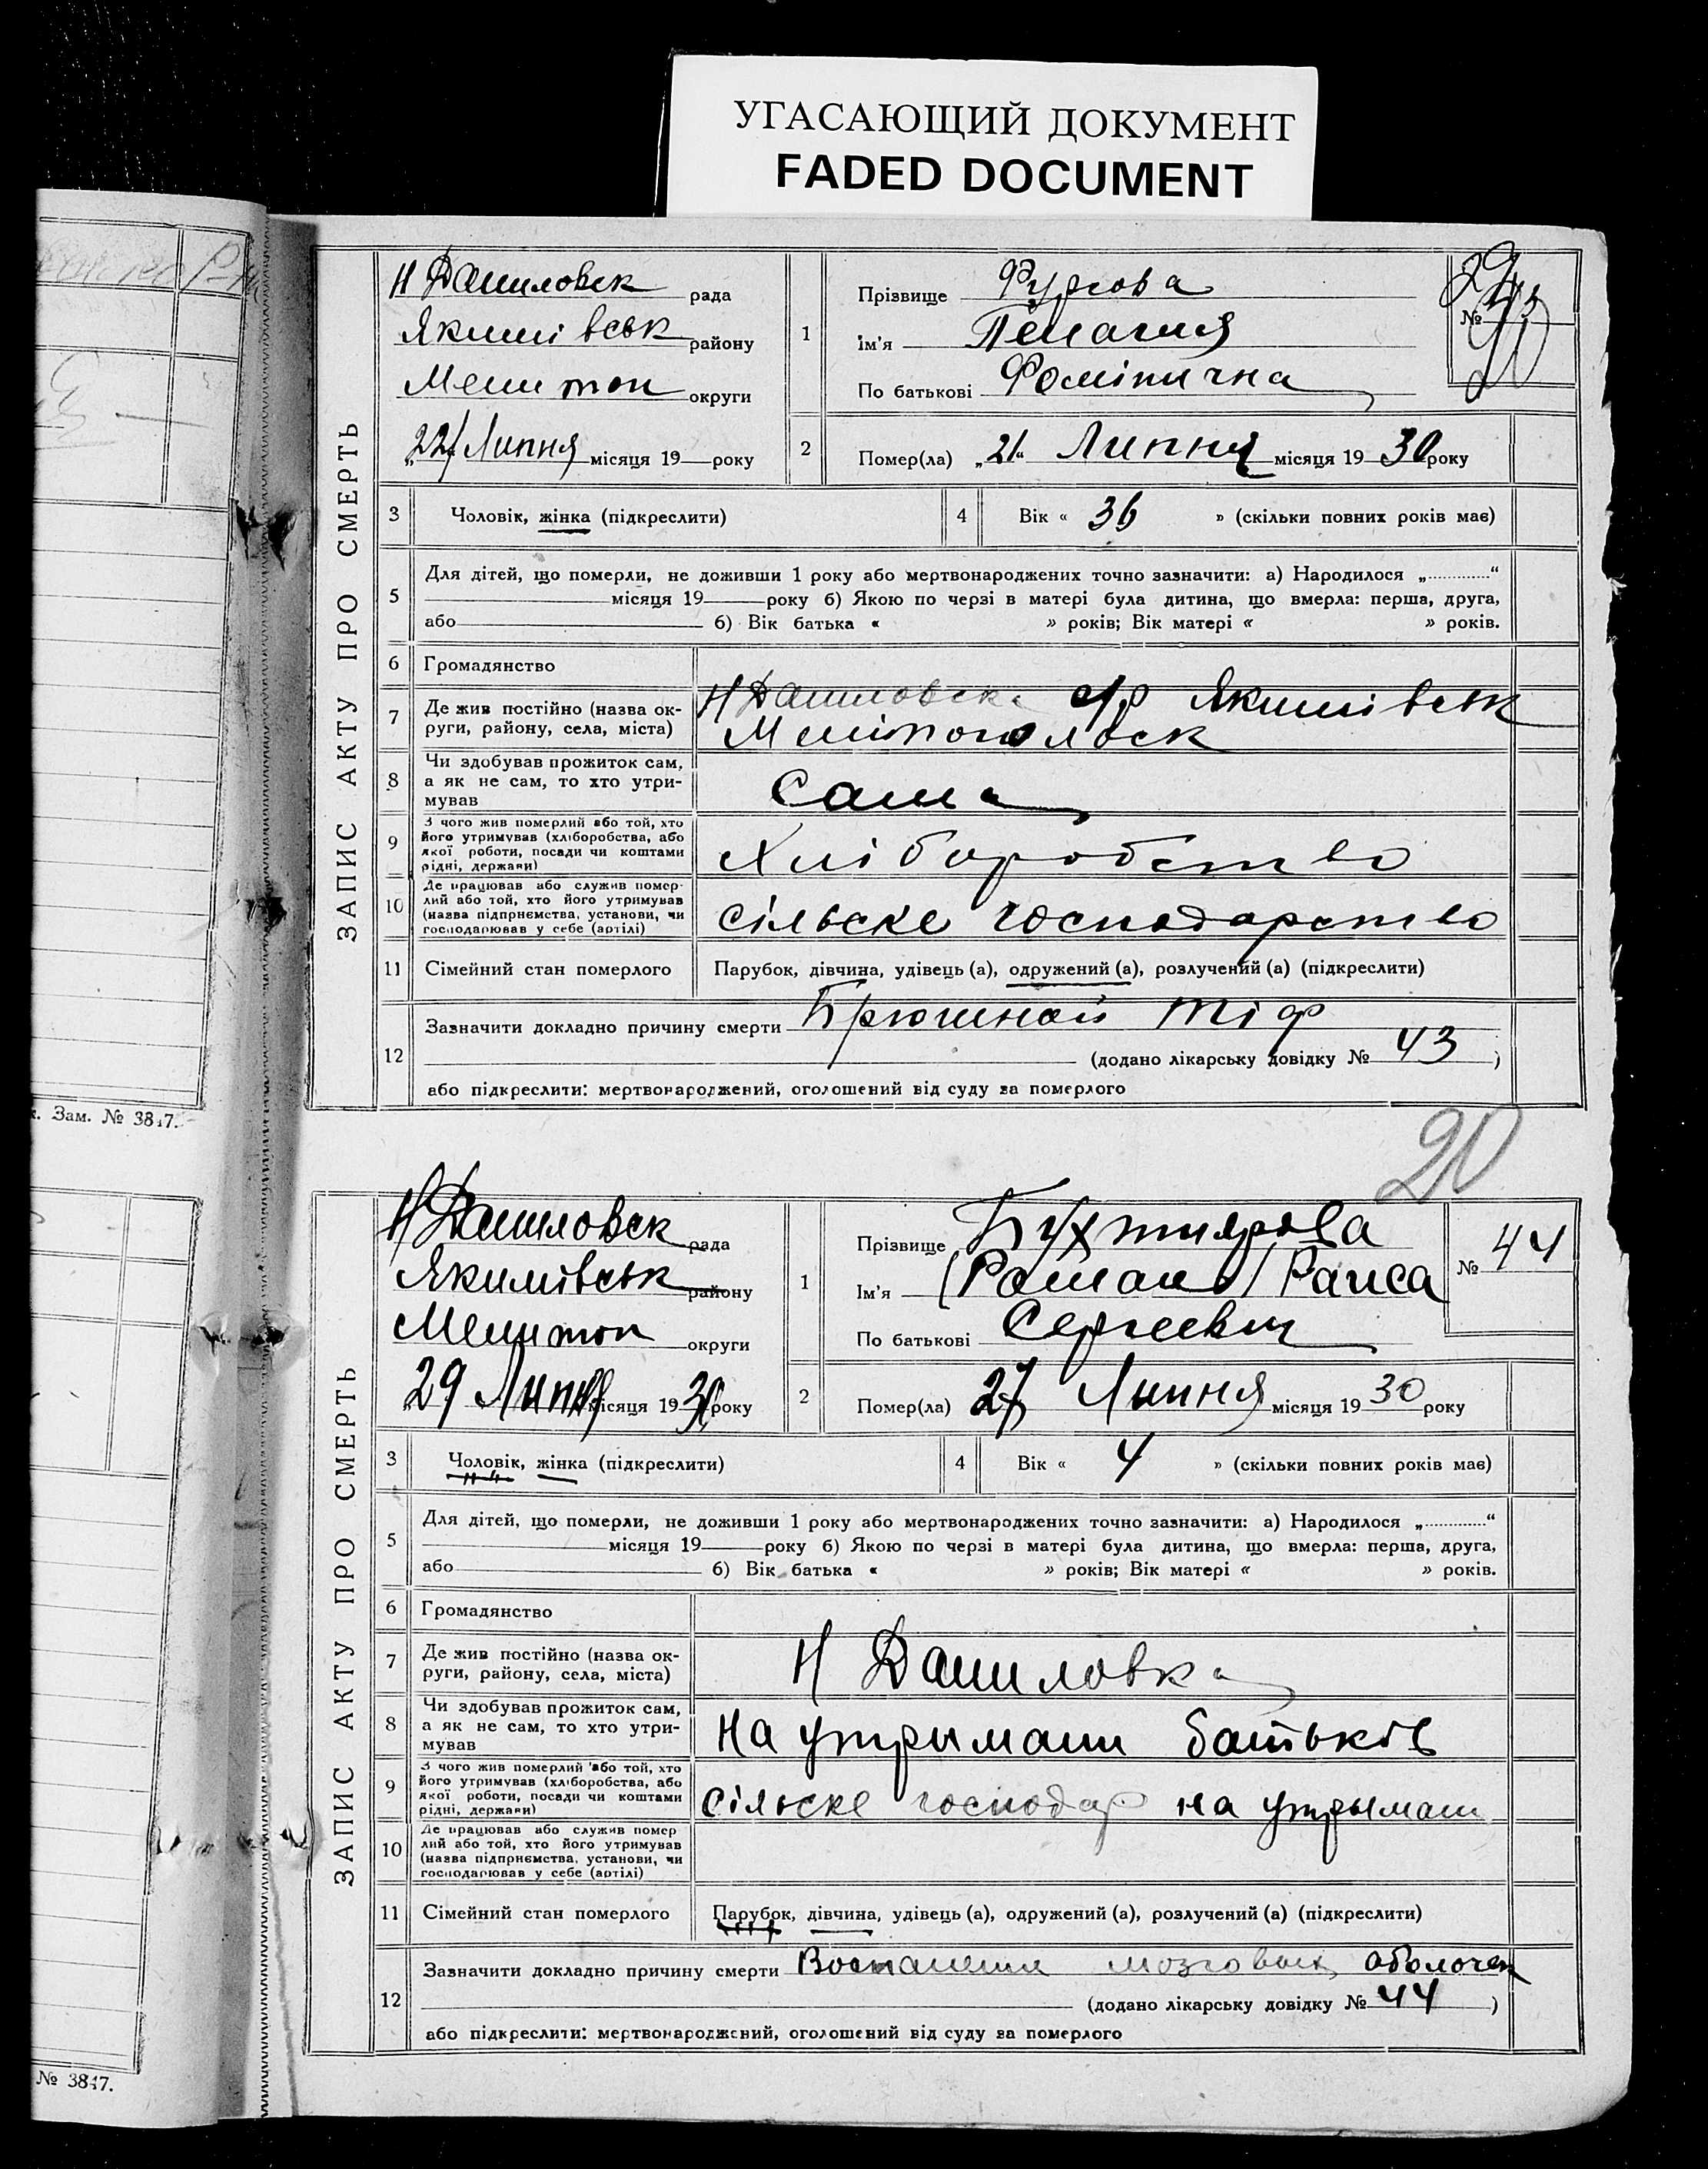 УГАСАЮЩИЙ ДОКУМЕНТ
FADED DOCUMENT
ЗАПИС АКТУ ПРО СМЕРТЬ
Н Даниловск рада
Якимівськ району
Мелитоп округи
„22" Липня місяця 19 року
1
Прізвище
Ім'я Пелагия
По батькові
№
2
Помер(ла) „21“ Липня місяця 19 30 року
3 Чоловік, жінка (підкреслити)
4 Вік « 36 » (скільки повних років має)
5
Для дітей, що померли, не доживши 1 року або мертвонароджених точно зазначити: а) Народилося „............“
місяця 19 року б) Якою по черзі в матері була дитина, що вмерла: перша, друга,
або б) Вік батька « » років; Вік матері « » років.
6 Громадянство
7 Де жив постійно (назва ок-
руги, району, села, міста)
Н Даниловск с/р Якимівськ
8 Чи здобував прожиток сам,
а як не сам, то хто утри-
мував
Сама
9 З чого жив померлий або той, хто
його утримував (хліборобства, або
якої роботи, посади чи коштами
рідні, держави)
Хліборобство
10 Де працював або служив помер-
лий або той, хто його утримував
(назва підприємства, установи, чи
господарював у себе (артілі)
сільске господарство
11 Сімейний стан померлого
Парубок, дівчина, удівець (а), одружений (а), розлучений (а) (підкреслити)
12
Зазначити докладно причину смерти Брюшной тіф
(додано лікарську довідку № 43)
або підкреслити: мертвонароджений, оголошений від суду за померлого
к. Зам. № 3847.
20
ЗАПИС АКТУ ПРО СМЕРТЬ
Н Даниловск рада
Якимівськ району
Мелитоп округи
29 Липня місяця 19 30 року
1
Прізвище Бухтиярова
Ім'я (Роман) Раиса
По батькові Сергеевич
№ 44
2
Помер(ла) 27 Липня місяця 19 30 року
3 Чоловік, жінка (підкреслити)
4 Вік « 4 » (скільки повних років має)
5
Для дітей, що померли, не доживши 1 року або мертвонароджених точно зазначити: а) Народилося „............“
місяця 19 року б) Якою по черзі в матері була дитина, що вмерла: перша, друга,
або б) Вік батька « » років; Вік матері « » років.
6 Громадянство
7 Де жив постійно (назва ок-
руги, району, села, міста)
Н Даниловка
8 Чи здобував прожиток сам,
а як не сам, то хто утри-
мував
на утрымани батьків
9 З чого жив померлий або той, хто
його утримував (хліборобства, або
якої роботи, посади чи коштами
рідні, держави)
сільске господар на утрымани
10 Де працював або служив помер
лий або той, хто його утримував
(назва підприємства, установи, чи
господарював у себе (артілі)
11 Сімейний стан померлого
Парубок, дівчина, удівець (а), одружений (а), розлучений (а) (підкреслити)
12
Зазначити докладно причину смерти Воспаление мозговых оболочек
(додано лікарську довідку № 44)
або підкреслити: мертвонароджений, оголошений від суду за померлого
№ 3847.